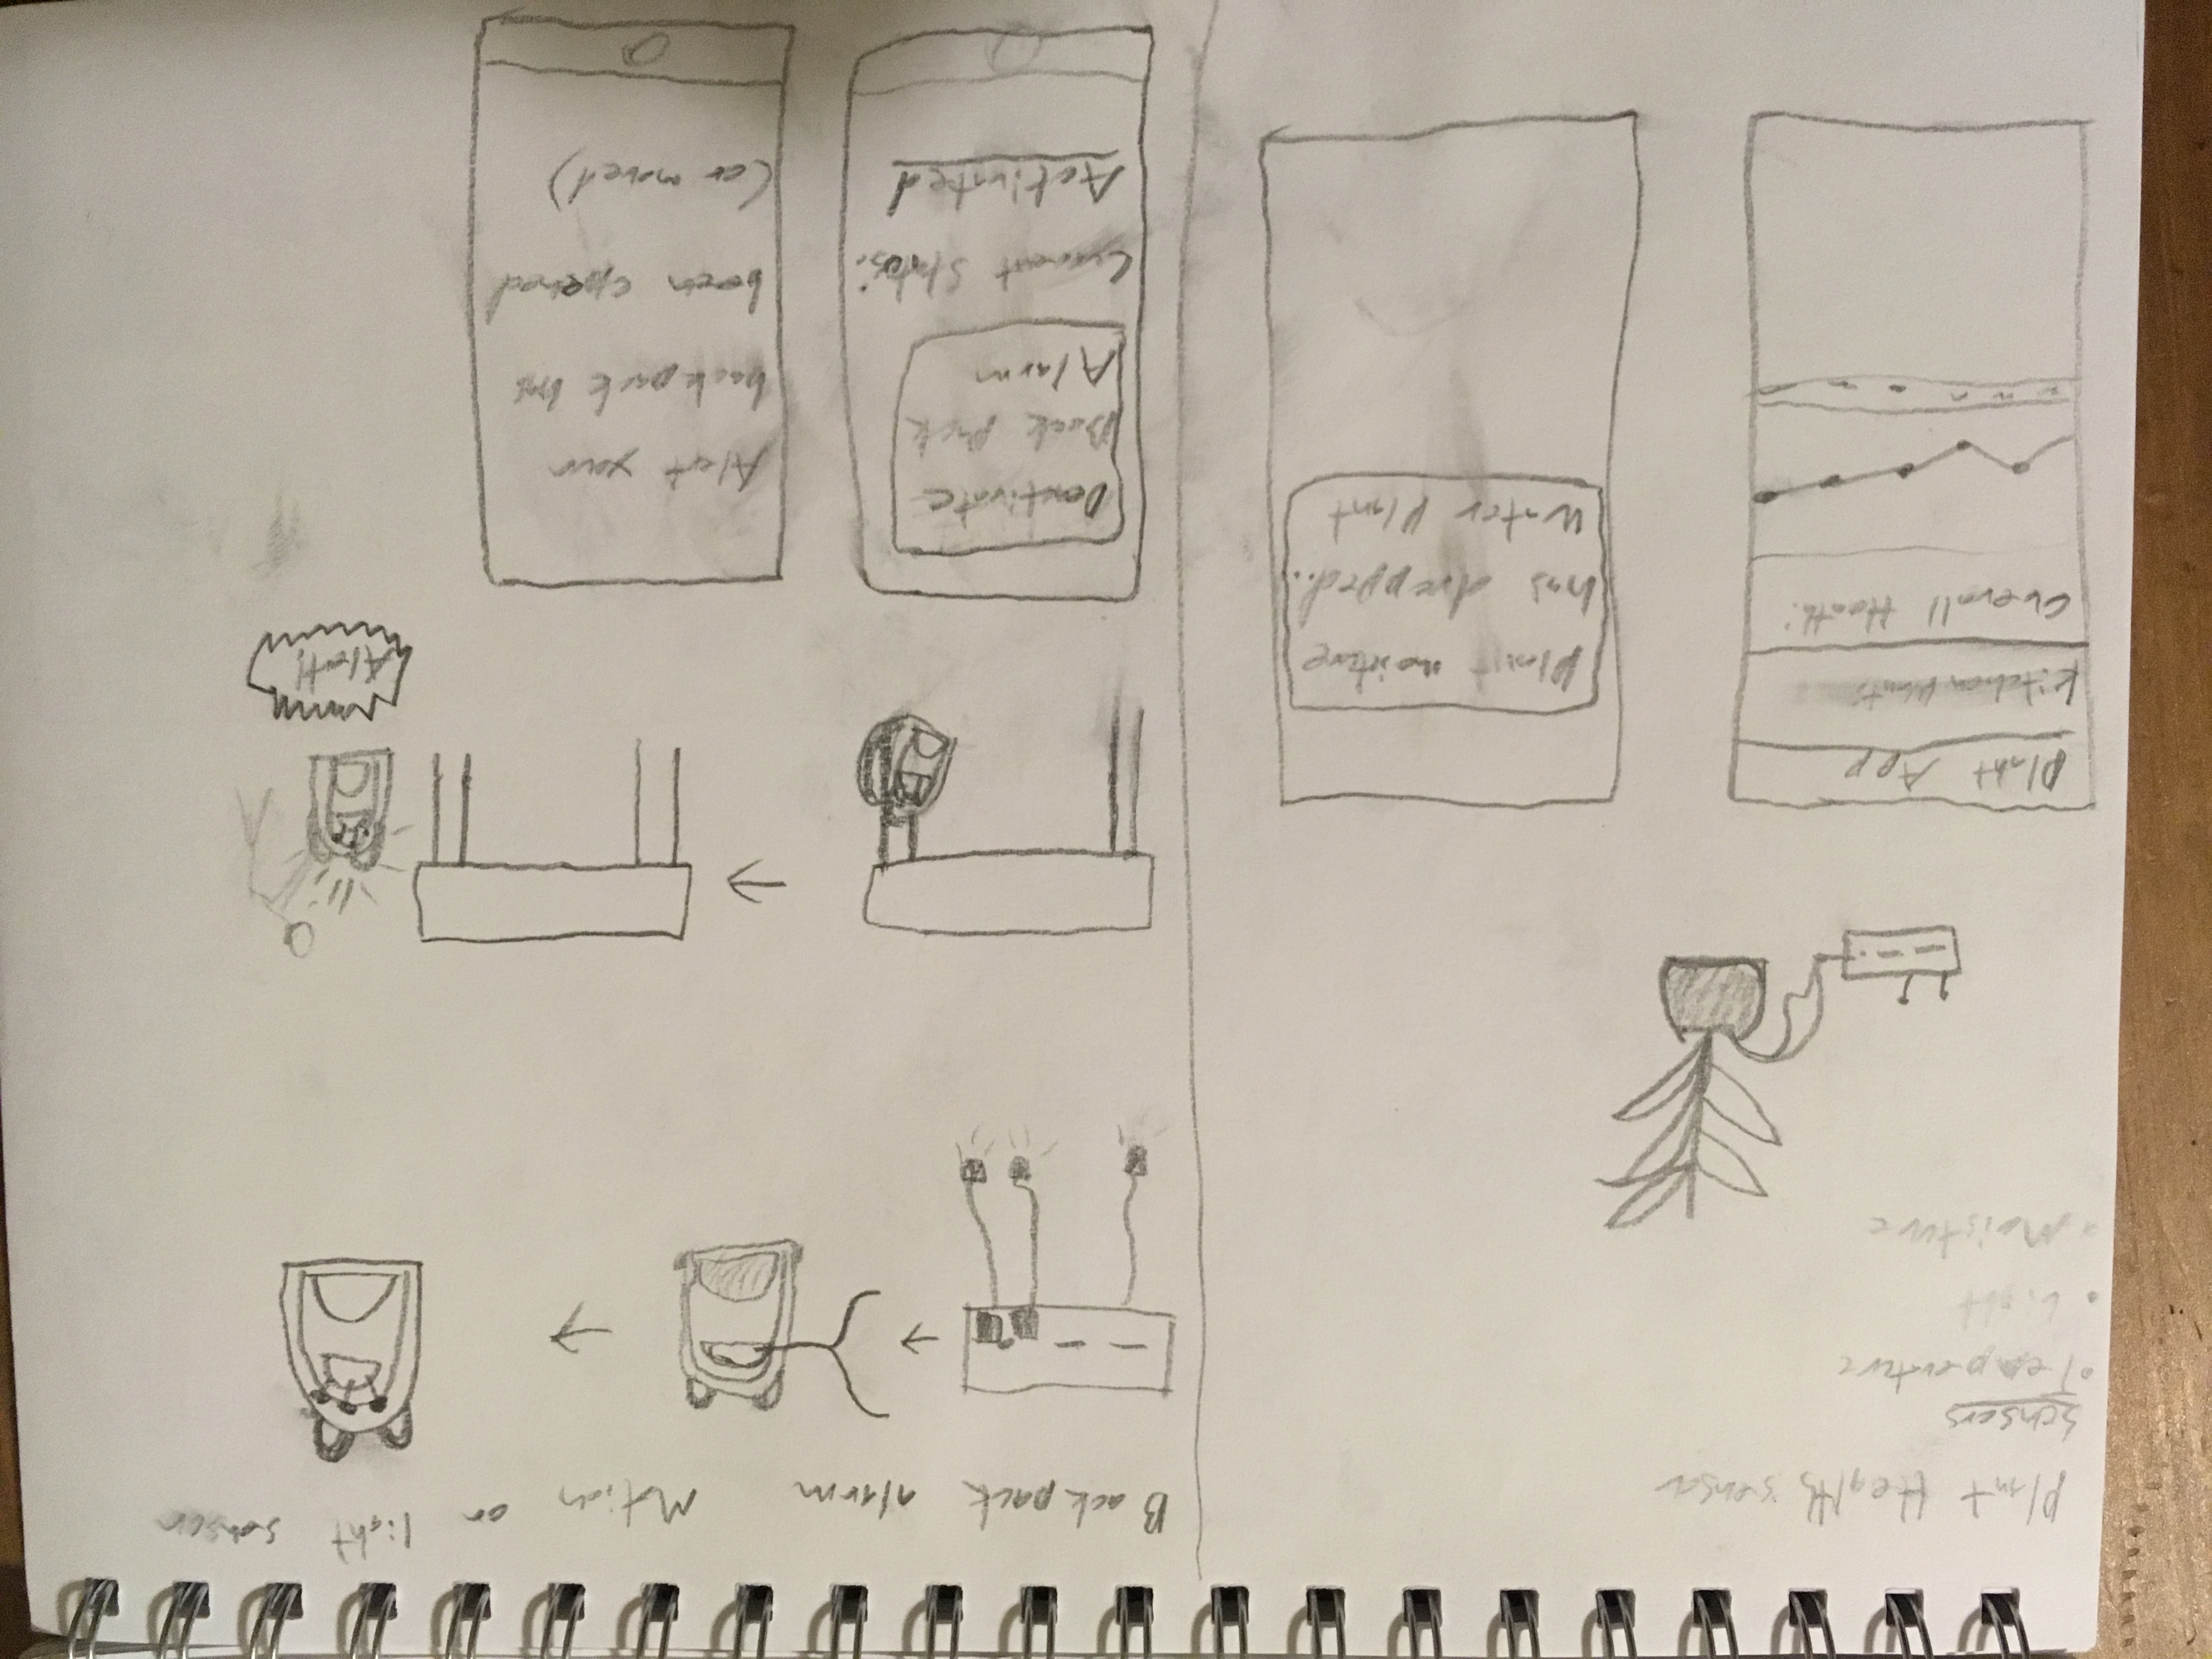 Plant Health sensor
Sensors
• Temperture
• Light
• Moisture
Plant App
Kitchen Plant:
Overall Heath:
Plant moisture
has dropped..
Water Plant
Backpack alarm Motion or light sensor
Alert!
Deactivate
Back Pack
Alarm
Current Status:
Activated
Alert your
backpack has
been oppened
(or moved)